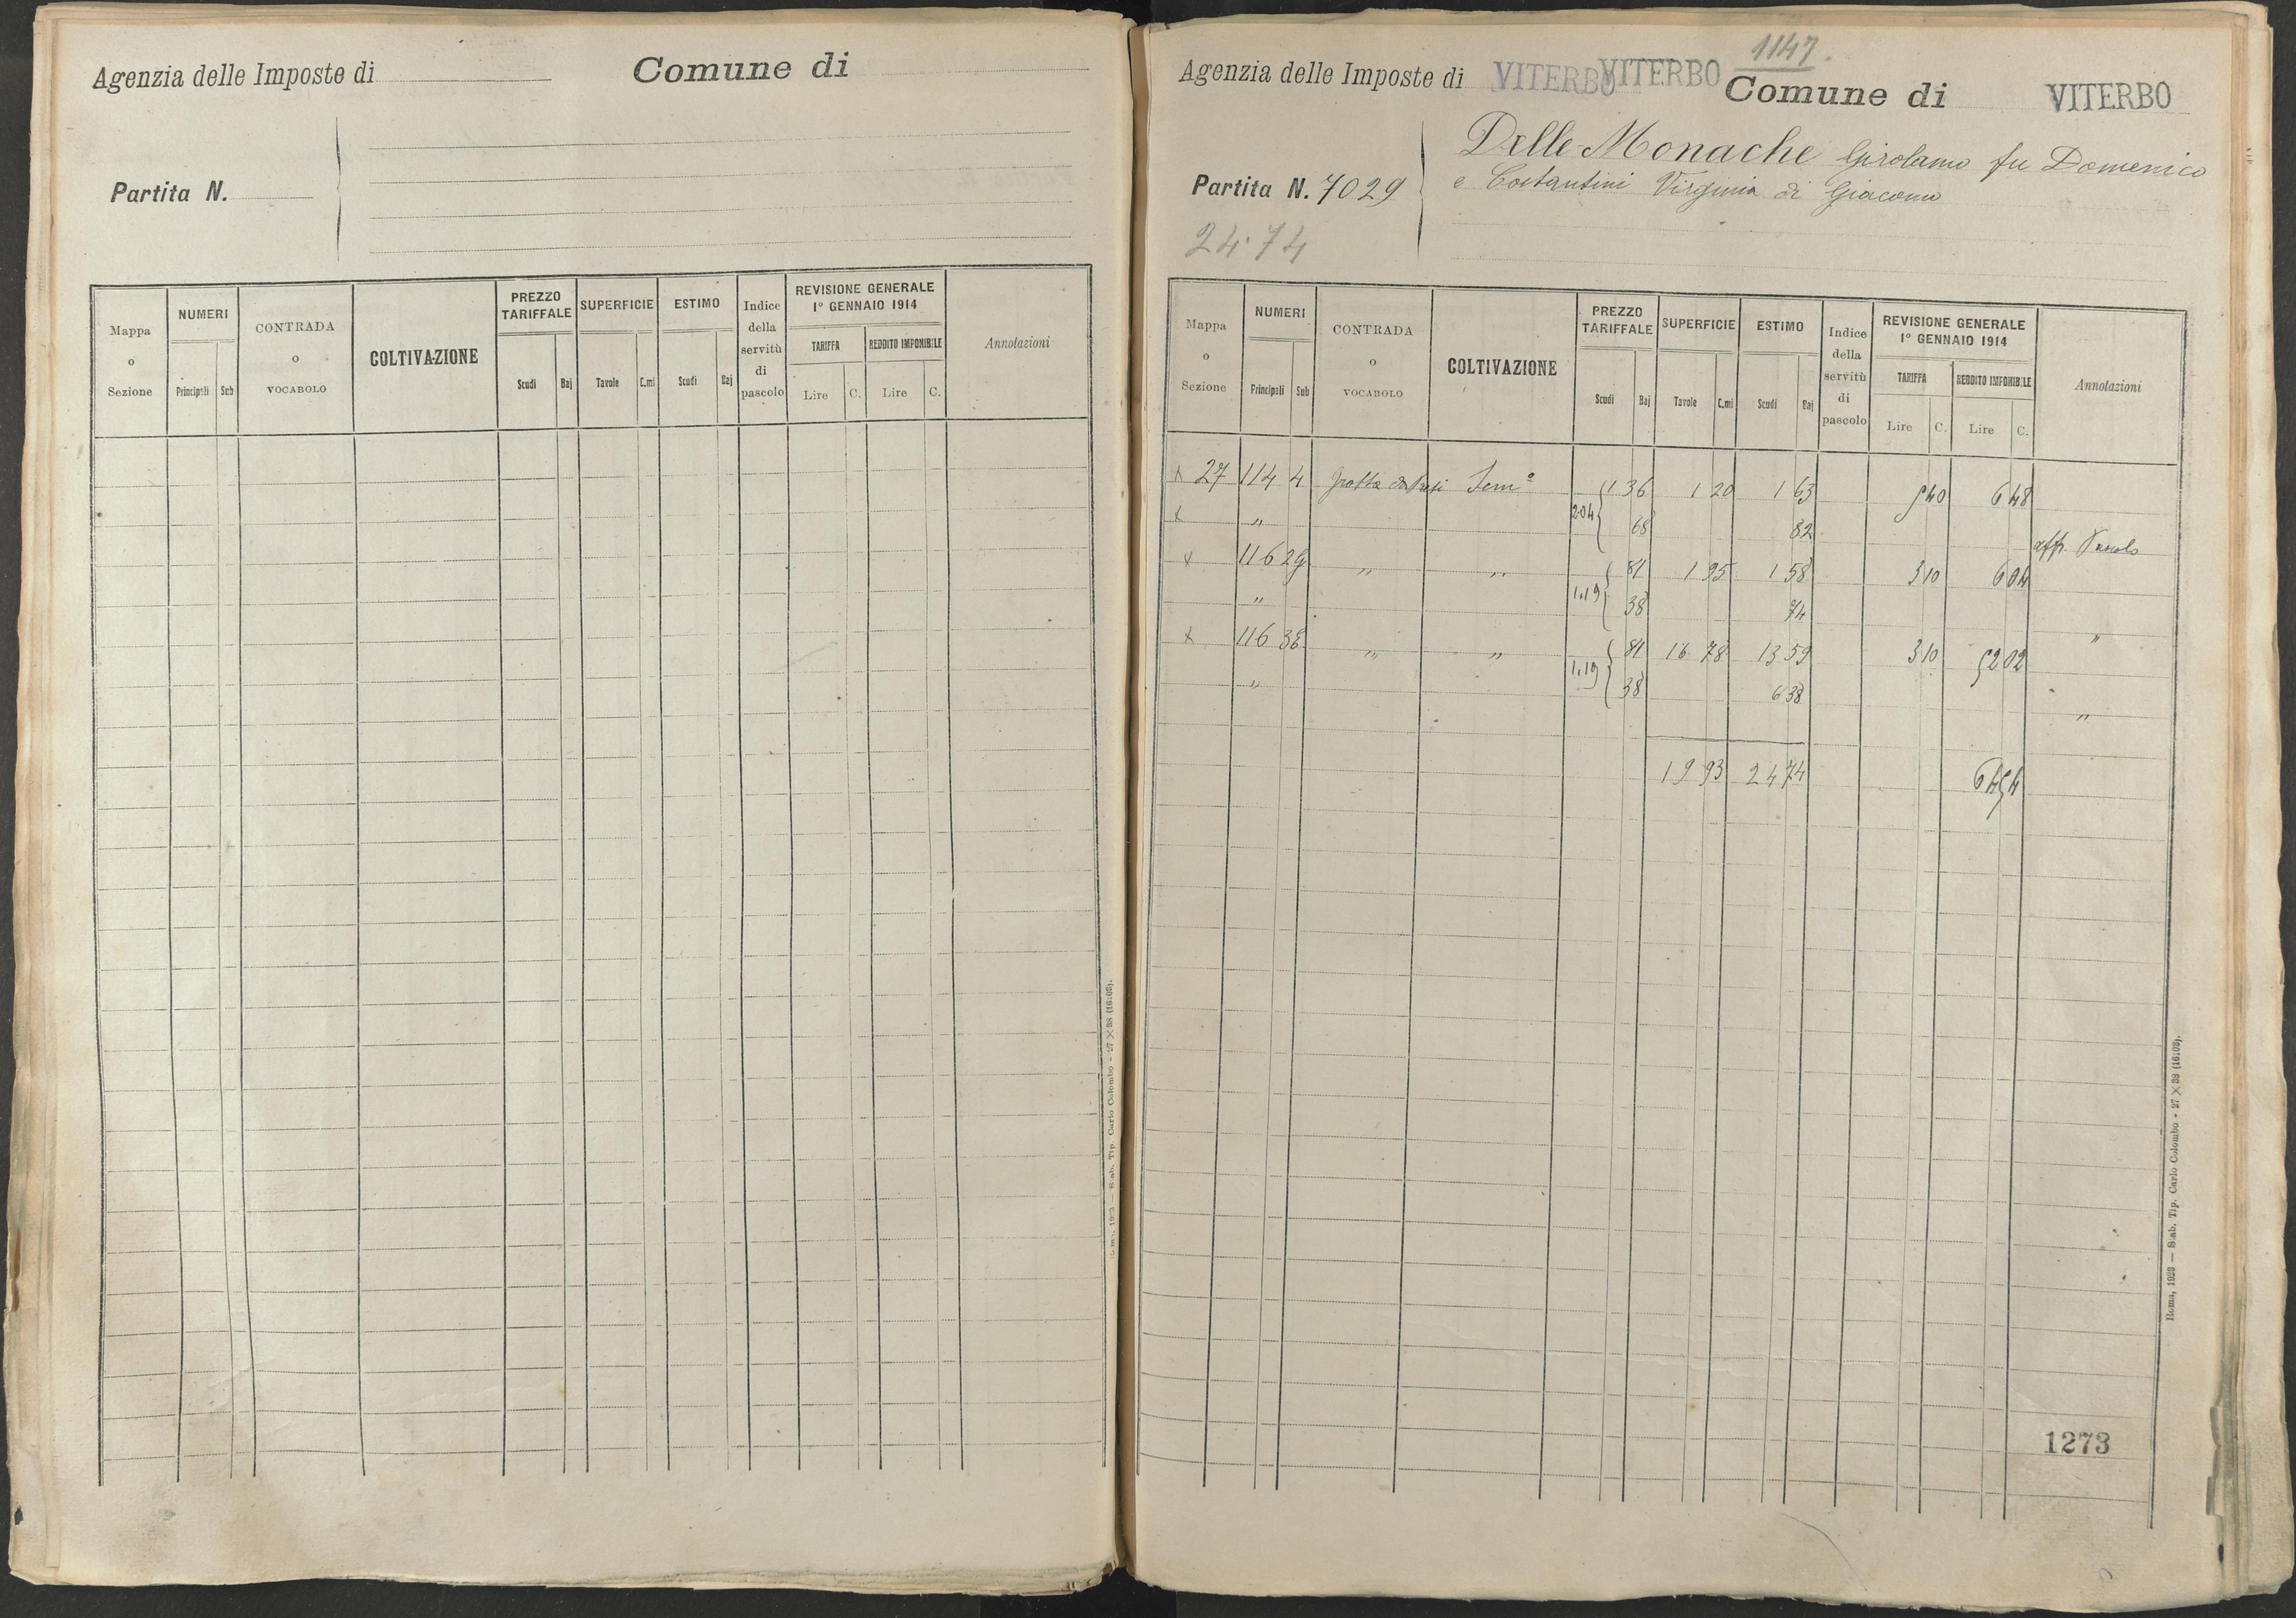 Agenzia delle Imposte di
Comune di
Partita N.
Mappa o Sezione
NUMERI
Principali
Sub
CONTRADA o VOCABOLO
COLTIVAZIONE
PREZZO TARIFFALE
Scudi
Baj
SUPERFICIE
Tavole
C.mi
ESTIMO
Scudi
Baj
Indice della servitù di pascolo
REVISIONE GENERALE
1° GENNAIO 1914
TARIFFA
Lire
C.
REDDITO IMPONIBILE
Lire
C.
Annotazioni
1147.
Agenzia delle Imposte di VITERBO VITERBO Comune di VITERBO
Delle Monache Girolamo fu Domenico
e Costantini Virginia di Giacomo
Partita N. 7029
24.74
Mappa o Sezione
NUMERI
Principali
Sub
CONTRADA o VOCABOLO
COLTIVAZIONE
PREZZO TARIFFALE
Scudi
Baj
SUPERFICIE
Tavole
C.mi
ESTIMO
Scudi
Baj
Indice della servitù di pascolo
REVISIONE GENERALE
1° GENNAIO 1914
TARIFFA
Lire
C.
REDDITO IMPONIBILE
Lire
C.
Annotazioni
x 27 114 4 Grotta Sem° 1 36 1 20 1 63 5 40 6 48
x " 2.04 68 82 aff.
x 116 29 " " 81 1 95 1 58 3 10 6 04
" 1.19 38 74 "
x 116 38 " " 81 16 78 13 59 3 10 52 02
" 1.19 38 6 38 "
19 93 24 74 64 54
1273
Roma, 1923 — Stab. Tip. Carlo Colombo - 27 X 38 (16103).